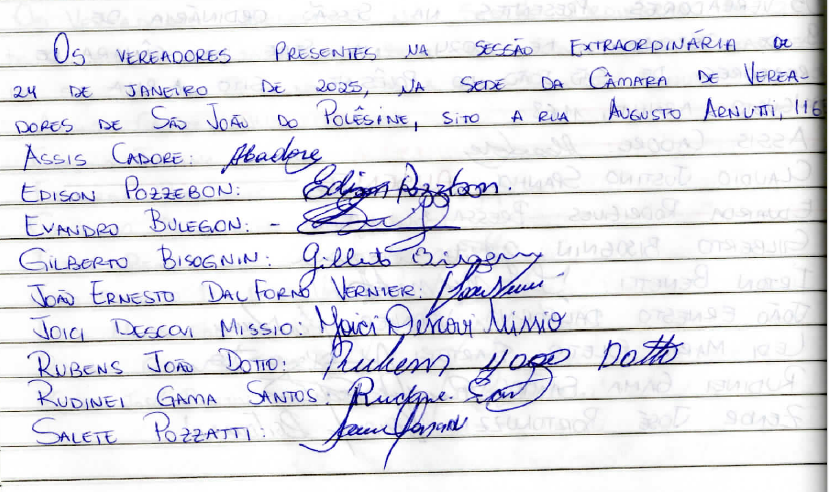 Os VEREADORES PRESENTES NA SESSÃO EXTRAORDINÁRIA DE
24 DE JANEIRO DE 2025, NA SEDE DA CÂMARA DE VEREA-
DORES DE SÃO JOÃO DO POLÊSINE, SITO A RUA AUGUSTO ARNUTTI, 116
ASSIS CADORE: Acadore
EDISON POZZEBON: Edison Pozzebon.
EVANDRO BULEGON: -
GILBERTO BISOGNIN: Gilberto Bisognin
JOÃO ERNESTO DAL FORNO VERNIER:
JOICI DESCOVI MISSIO: Joici Descovi Missio
RUBENS JOÃO DOTTO: Rubens João Dotto
RUDINEI GAMA SANTOS:
SALETE POZZATTI: